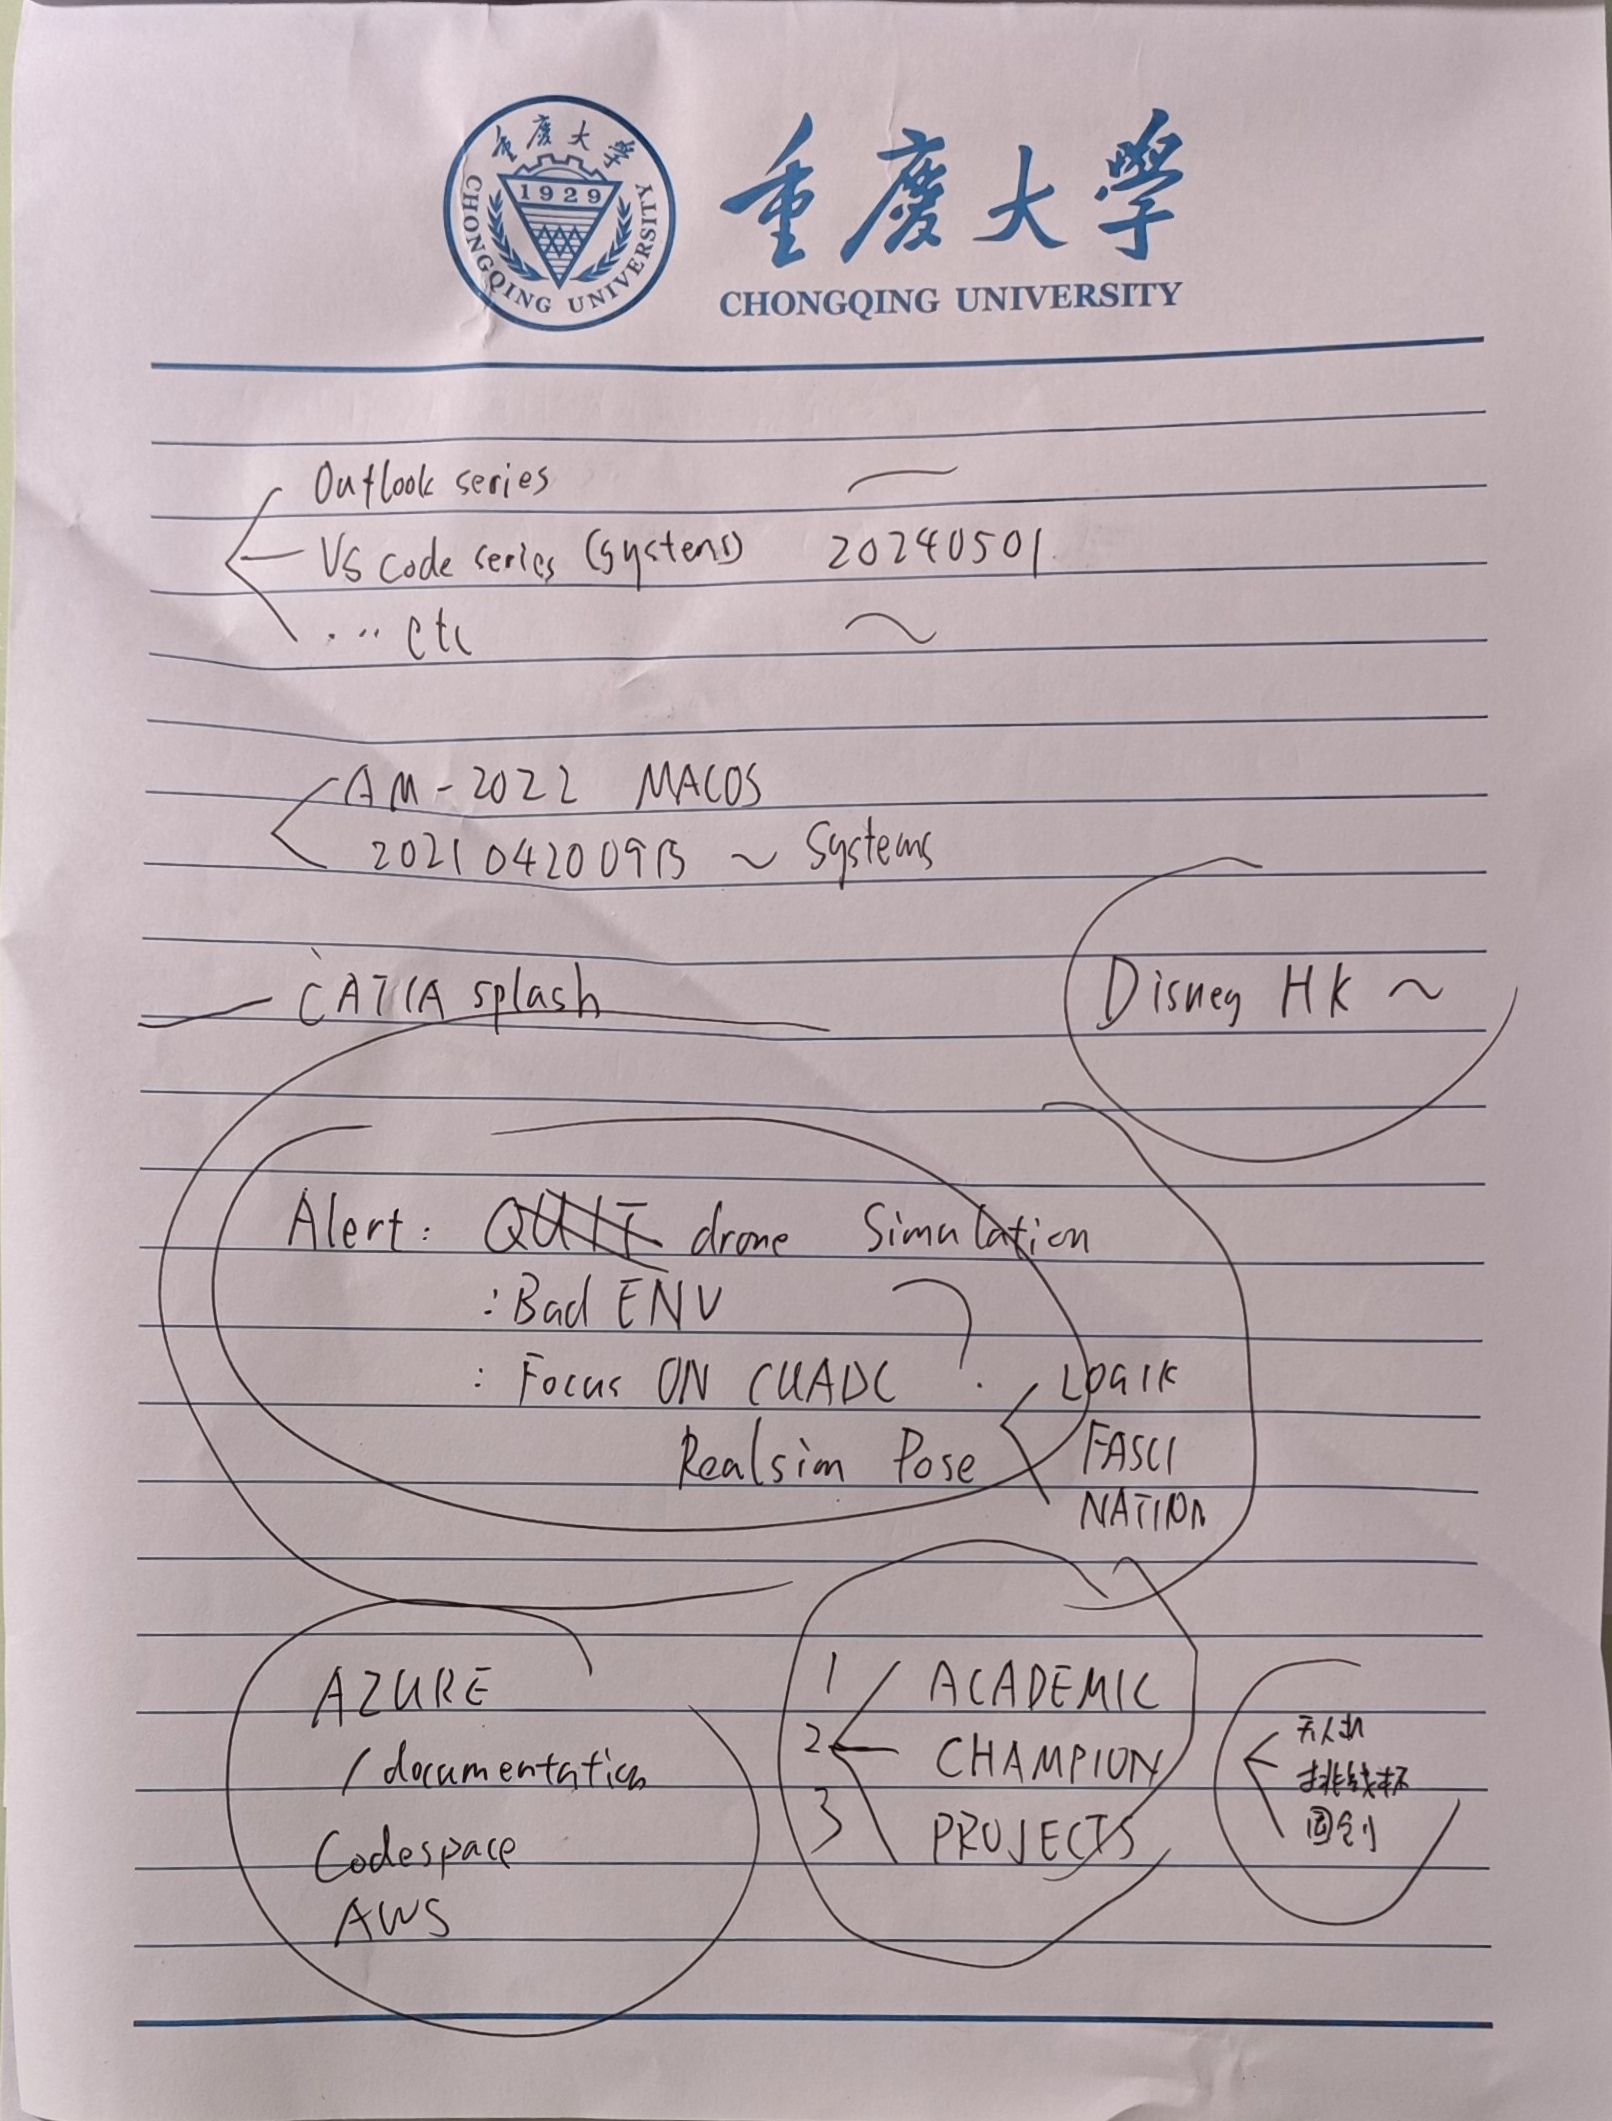 重慶大學
1929
CHONGQING UNIVERSITY
重慶大學
CHONGQING UNIVERSITY
Outlook series
VS code series (systems) 20240501
... etc
AM-2022 MACOS
2021042009B ~ Systems
CATIA splash
Disney HK ~
Alert: QUIT drone Simulation
: Bad ENV
: Focus ON CUADC ?
Realsim Pose
LOGIK
FASCI
NATION
AZURE
/documentation
Codespace
AWS
1 ACADEMIC
2 CHAMPION
3 PROJECTS
无人机
挑战杯
国创